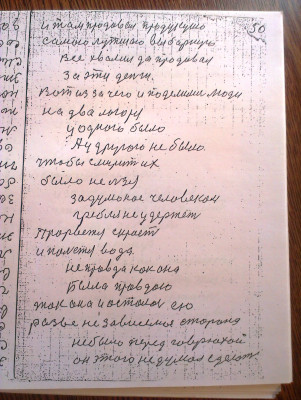 50
и там продовал продукцию
самою лутшою выбарную
Все хвалил да продовал
За эти денги.
Вот из за чего и поделили люди
на два логоря
у одного было
А у другого не было
чтобы слилит их
было не лзя
задуманое человеком
гребля не удержет
Прорвется скрест
и полется вода
неправда как она
Была правдою
так она и осталась ею
разве не зависемая сторона
небыло перед говрюхой
он этого не думал сделат